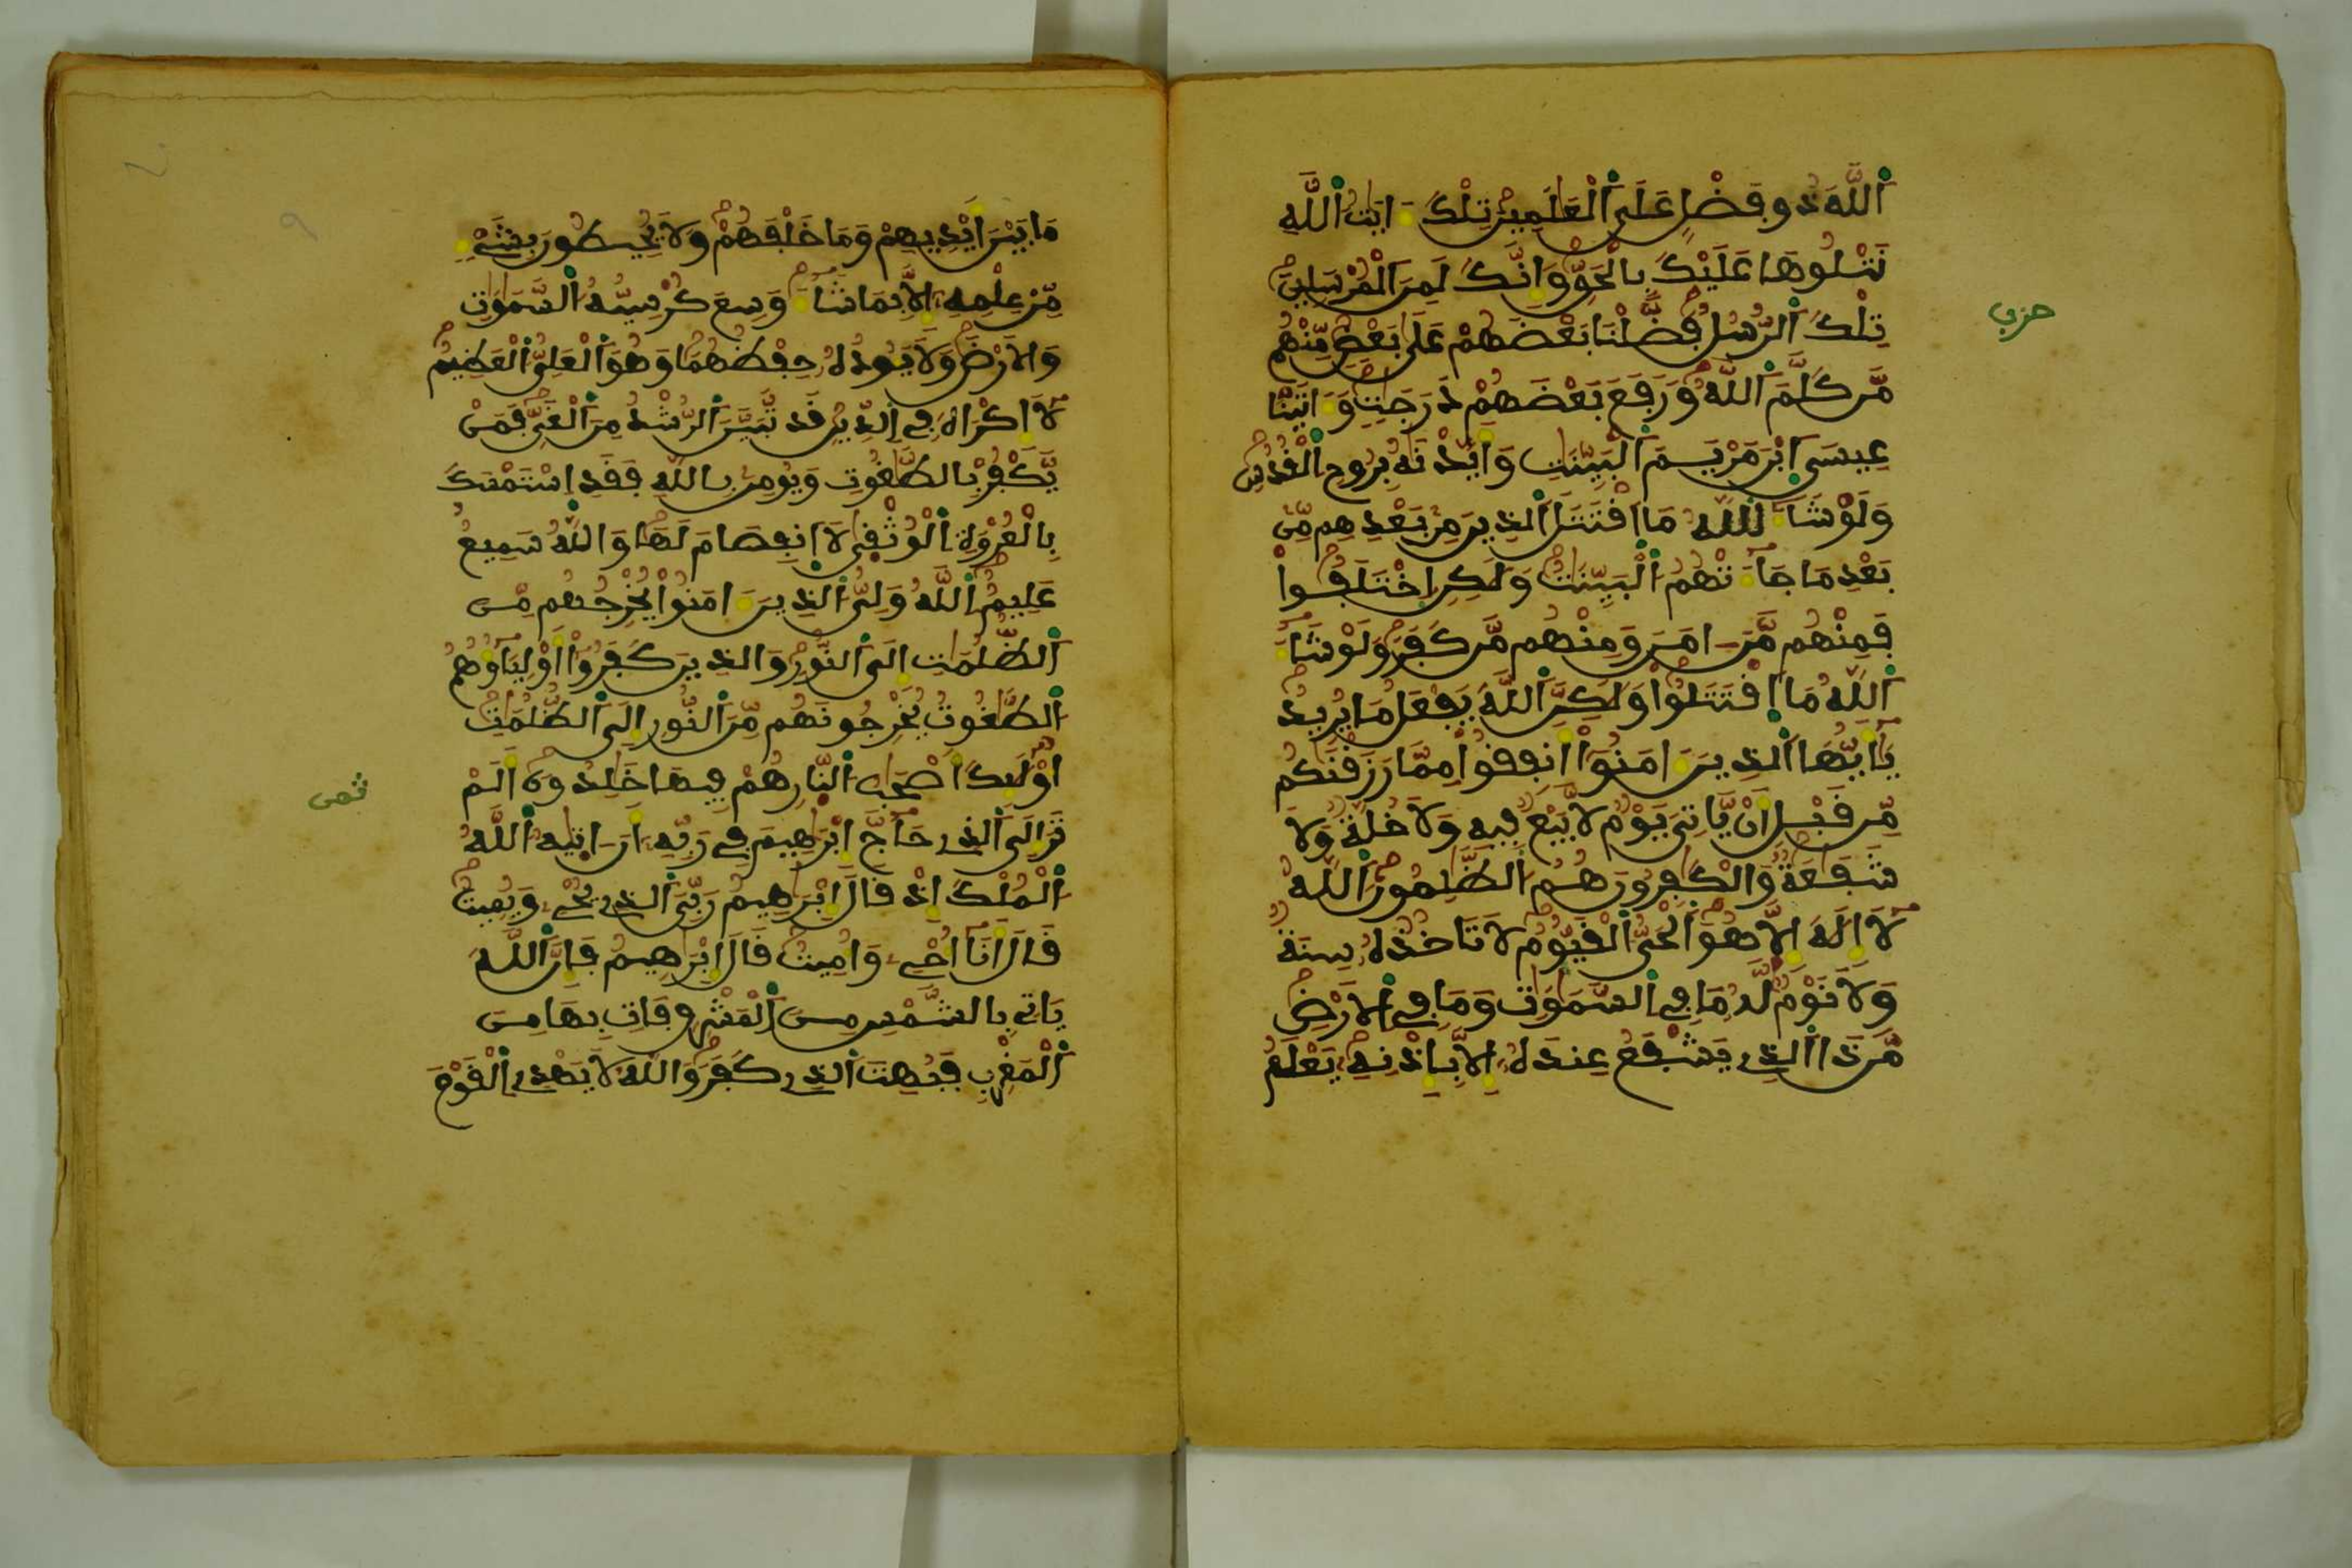 اَللَّهَ ذُو فَضْلٍ عَلَى اَلْعَٰلَمِينَ تِلْكَ ءَايَٰتُ اُللَّهِ
نَتْلُوهَا عَلَيْكَ بِالْحَقِّ وَإِنَّكَ لَمِنَ اَلْمُرْسَلِينَ
حزب
تِلْكَ اَلرُّسُلُ فَضَّلْنَا بَعْضَهُمْ عَلَىٰ بَعْضٍ مِّنْهُم
مَّن كَلَّمَ اَللَّهُ وَرَفَعَ بَعْضَهُمْ دَرَجَٰتٍ وَءَاتَيْنَا
عِيسَى اَبْنَ مَرْيَمَ اَلْبَيِّنَٰتِ وَأَيَّدْنَٰهُ بِرُوحِ اِلْقُدُسِ
وَلَوْ شَآءَ اَللَّهُ مَا اَقْتَتَلَ اَلذِينَ مِنۢ بَعْدِهِم مِّنۢ
بَعْدِ مَا جَآءَتْهُمُ اُلْبَيِّنَٰتُ وَلَٰكِنِ اِخْتَلَفُواْ
فَمِنْهُم مَّنَ ءَامَنَ وَمِنْهُم مَّن كَفَرَ وَلَوْ شَآءَ
اَللَّهُ مَا اَقْتَتَلُواْ وَلَٰكِنَّ اَللَّهَ يَفْعَلُ مَا يُرِيدُ
يَٰٓأَيُّهَا اَلذِينَ ءَامَنُوٓاْ أَنفِقُواْ مِمَّا رَزَقْنَٰكُم
مِّن قَبْلِ أَنْ يَّاتِيَ يَوْمٌ لَّا بَيْعٌ فِيهِ وَلَا خُلَّةٌ وَلَا
شَفَٰعَةٌ وَالْكَٰفِرُونَ هُمُ اُلظَّٰلِمُونَ اَللَّهُ
لَآ إِلَٰهَ إِلَّا هُوَ اَلْحَيُّ اُلْقَيُّومُ لَا تَاخُذُهُۥ سِنَةٌ
وَلَا نَوْمٌ لَّهُۥ مَا فِي اِلسَّمَٰوَٰتِ وَمَا فِي اِلَارْضِ
مَن ذَا اَلذِي يَشْفَعُ عِندَهُۥٓ إِلَّا بِإِذْنِهِۦ يَعْلَمُ
مَا بَيْنَ أَيْدِيهِمْ وَمَا خَلْفَهُمْ وَلَا يُحِيطُونَ بِشَےْءٍ
مِّنْ عِلْمِهِۦٓ إِلَّا بِمَا شَآءَ وَسِعَ كُرْسِيُّهُ اُلسَّمَٰوَٰتِ
وَالَارْضَ وَلَا يَـُٔودُهُۥ حِفْظُهُمَا وَهُوَ اَلْعَلِيُّ اُلْعَظِيمُ
لَآ إِكْرَاهَ فِي اِلدِّينِ قَد تَّبَيَّنَ اَلرُّشْدُ مِنَ اَلْغَيِّ فَمَنْ
يَّكْفُرْ بِالطَّٰغُوتِ وَيُومِنۢ بِاللَّهِ فَقَدِ اِسْتَمْسَكَ
بِالْعُرْوَةِ اِلْوُثْقَىٰ لَا اَنفِصَامَ لَهَا وَاللَّهُ سَمِيعٌ
عَلِيمٌ اَللَّهُ وَلِيُّ اُلذِينَ ءَامَنُواْ يُخْرِجُهُم مِّنَ
اَلظُّلُمَٰتِ إِلَى اَلنُّورِ وَالذِينَ كَفَرُوٓاْ أَوْلِيَآؤُهُمُ
اُلطَّٰغُوتُ يُخْرِجُونَهُم مِّنَ اَلنُّورِ إِلَى اَلظُّلُمَٰتِ
أُوْلَٰٓئِكَ أَصْحَٰبُ اُلنَّارِ هُمْ فِيهَا خَٰلِدُونَ أَلَمْ
ثمن
تَرَ إِلَى اَلذِي حَآجَّ إِبْرَٰهِيمَ فِي رَبِّهِۦٓ أَنَ ءَاتَيٰهُ اُللَّهُ
اُلْمُلْكَ إِذْ قَالَ إِبْرَٰهِيمُ رَبِّيَ اَلذِي يُحْيِۦ وَيُمِيتُ
قَالَ أَنَآ أُحْيِۦ وَأُمِيتُ قَالَ إِبْرَٰهِيمُ فَإِنَّ اَللَّهَ
يَاتِي بِالشَّمْسِ مِنَ اَلْمَشْرِقِ فَاتِ بِهَا مِنَ
اَلْمَغْرِبِ فَبُهِتَ اَلذِي كَفَرَ وَاللَّهُ لَا يَهْدِي اِلْقَوْمَ